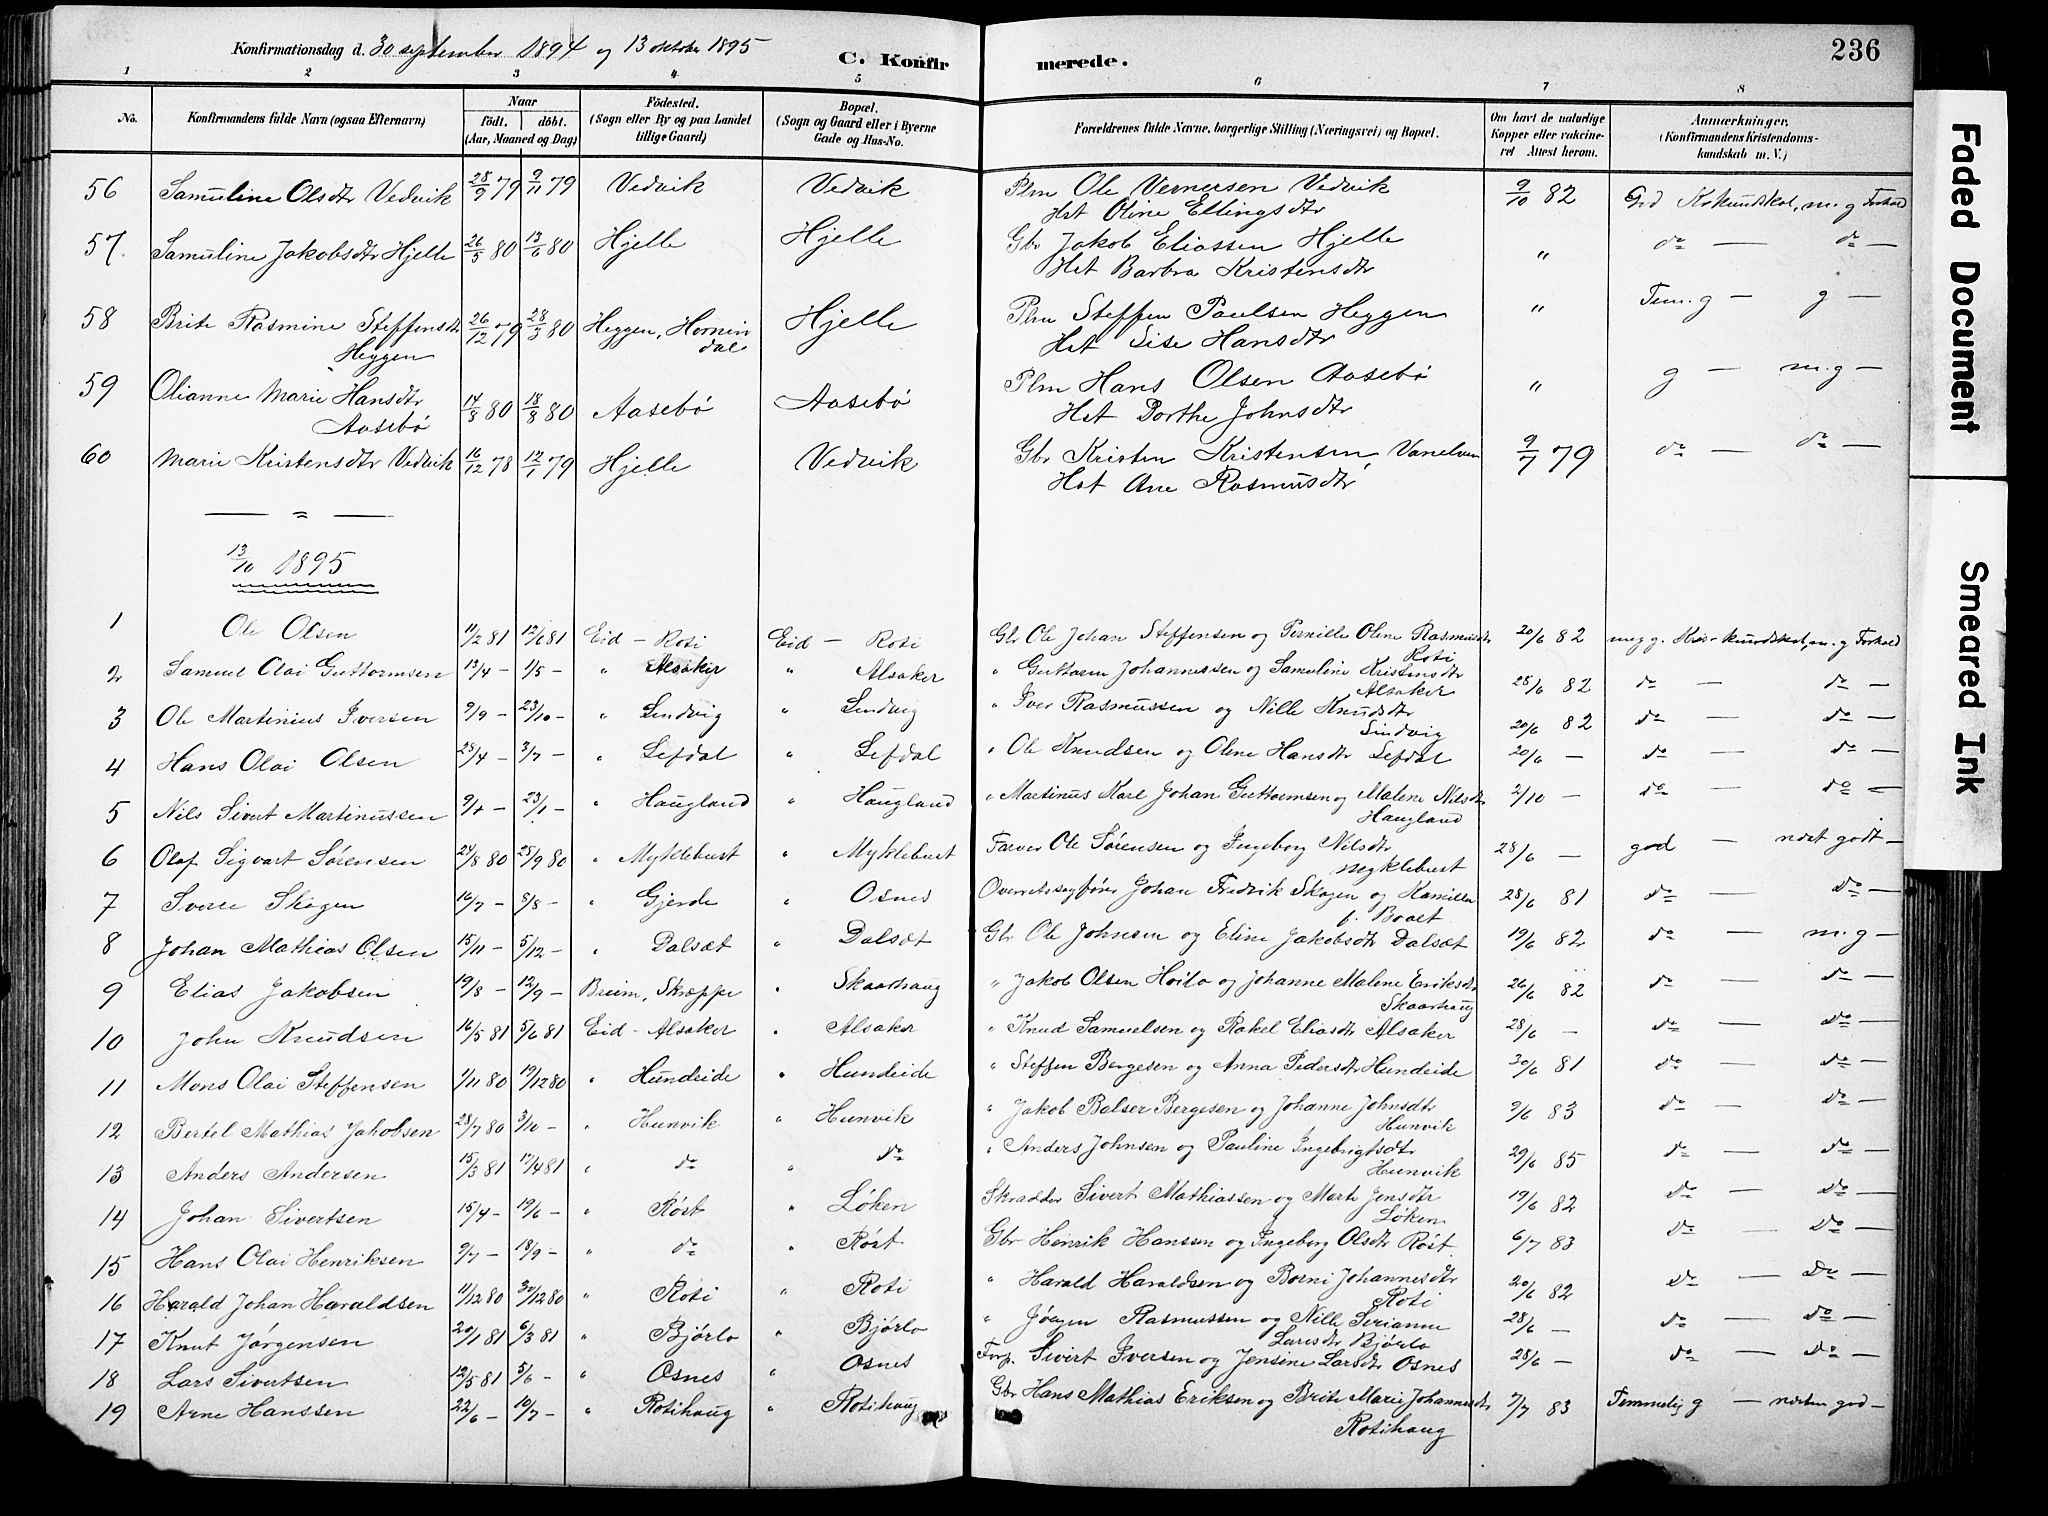 Konfirmationsdag d. 30 september 1894 og 13 oktober 1895
C. Konfirmerede.
236
1 2 3 4 5 6 7 8
No. Konfirmandens fulde Navn (ogsaa Efternavn) Naar født. døbt. (Aar, Maaned og Dag) Fødested. (Sogn eller By og paa Landet tillige Gaard) Bopæl. (Sogn og Gaard eller i Byerne Gade og Hus-No. Forældrenes fulde Navne, borgerlige Stilling (Næringsvei) og Bopæl. Om havt de naturlige Kopper eller vakcineret Attest herom. Anmærkninger, (Konfirmandens Kristendomskundskab m. V.)
56 Samuline Olsdtr Vedvik 28/9 79 9/11 79 Vedvik Vedvik Plm Ole Vernersen Vedvik 9/10 82 God Krkundskab, m. g Forhold
Hst Oline Ellingsdtr
57. Samuline Jakobsdtr Hjelle 26/5 80 13/6 80 Hjelle Hjelle Gbr Jakob Eliassen Hjelle " do — do —
Hst Barbra Kristensdtr
58 Brite Rasmine Steffensdtr 26/12 79 28/3 80 Heggen, Hornin Hjelle Plm Steffen Paulsen Heggen " Tem. g — g —
Heggen dal Hst Sise Hansdtr
59 Olianne Marie Hansdtr 14/8 80 18/8 80 Aasebø Aasebø Plm Hans Olsen Aasebø " g — m. g —
Aasebø Hst Dorthe Johnsdtr
60 Marie Kristensdtr Vedvik 16/12 78 12/1 79 Hjelle Vedvik Gbr Kristen Kristensen Vanelven 9/7 79 do — do —
Hst Ane Rasmusdtr
— " —
13/10 1895
1 Ole Olsen 11/2 81 12/6 81 Eid — Roti Eid — Roti Gbr Ole Johan Steffensen og Pernille Oline Rasmusdtr 20/6 82 meg g. Kr. kundskab, m. g Forhold
Roti
2 Samuel Olai Guttormsen 13/4 — 1/5 — " Alsaker " Alsaker " Guttorm Johannessen og Samuline Kristensdtr 28/6 82 do — do —
Alsaker
3 Ole Martinius Iversen 9/9 — 23/10 — " Lindvig " Lindvig " Iver Rasmussen og Nille Knudsdtr 20/6 82 do — do —
Lindvig
4 Hans Olai Olsen 25/4 — 3/7 — " Lefdal " Lefdal " Ole Knudsen og Oline Hansdtr Lefdal 20/6 — do — do —
5 Nils Sivert Martinussen 9/1 — 23/1 — " Haugland " Haugland " Martinus Karl Johan Guttormsen og Malene Nilsdtr 2/10 — do — do —
Haugland
6 Olaf Sigvart Sørensen 24/8 80 25/9 80 " Myklebust " Myklebust Farver Ole Sørensen og Ingeborg Nilsdtr 28/6 — god — noet godt —
Myklebust
7 Sverre Skogen 16/7 — 8/8 — " Gjerde " Osnes Overretssagfører Johan Fredrik Skogen og Kamilla 28/6 81 do — do —
f. Boalt
8 Johan Mathias Olsen 15/11 — 5/12 — " Dalsæt " Dalsæt Gbr Ole Johnsen og Eline Jakobsdtr Dalsæt 19/6 82 do — m. g —
9 Elias Jakobsen 19/8 — 12/9 — Breim, Skræppe " Skaarhaug " Jakob Olsen Hoilo og Johanne Malene Eriksdtr 26/6 82 do — do —
Skaarhaug
10 John Knudsen 16/5 81 5/6 81 Eid — Alsaker " Alsaker " Knud Samuelsen og Rakel Eliasdtr Alsaker 28/6 — do — do —
11 Mons Olai Steffensen 1/11 80 19/12 80 " Hundeide " Hundeide " Steffen Bergesen og Anna Pedersdtr Hundeide 30/6 81 do — do —
12 Bertel Mathias Jakobsen 28/7 80 3/10 — " Hunvik " Hunvik " Jakob Balser Bergesen og Johanne Johnsdtr 9/6 83 do — do —
Hunvik
13 Anders Andersen 15/3 81 17/4 81 " do " do " Anders Johnsen og Pauline Ingebrigtsdtr 29/6 85 do — do —
Hunvik
14 Johan Sivertsen 15/4 — 19/6 — " Røst " Løken Skrædder Sivert Mathiassen og Marte Jensdtr 19/6 82 do — do —
Løken
15 Hans Olai Henriksen 9/7 — 18/9 — " do " Røst Gbr Henrik Hanssen og Ingeborg Olsdtr Røst 6/7 83 do — do —
16 Harald Johan Haraldsen 11/12 80 30/12 80 " Roti " Roti " Harald Haraldsen og Borni Johannesdtr 20/6 82 do — do —
Roti
17 Knut Jørgensen 20/1 81 6/3 81 " Bjørlo " Bjørlo " Jørgen Rasmussen og Nille Serianne 28/6 — do — do —
Larsdtr Bjørlo
18 Lars Sivertsen 12/5 81 5/6 — " Osnes " Osnes Forp. Sivert Iversen og Jensine Larsdtr Osnes 28/6 — do — do —
19 Arne Hanssen 22/6 — 10/7 — " Rotihaug " Rotihaug Gbr Hans Mathias Eriksen og Brite Marie Johannesdtr 7/7 83 Temmelig g — noten god —
Rotihaug
Faded Document
Smeared Ink